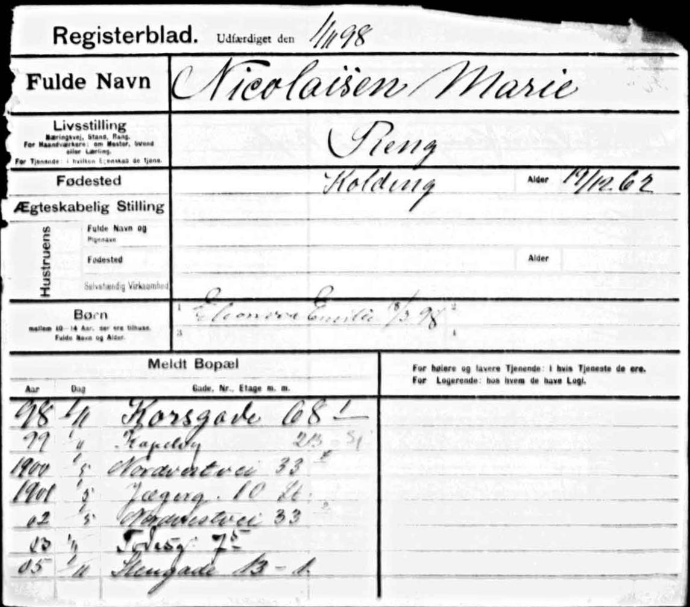 Registerblad. Udfærdiget den 1/11 98
Fulde Navn Nicolaisen Marie
Livsstilling
Næringsvej, Stand, Rang.
For Haandværkere: om Mester, Svend
eller Lærling.
For Tjenende: i hvilken Egenskab de tjene.
Reng
Fødested Kolding Alder 19/12. 62
Ægteskabelig Stilling
Hustruens
Fulde Navn og
Pigenavn
Fødested Alder
Selvstændig Virksomhed
Børn
mellem 10-14 Aar, der ere tilhuse.
Fulde Navn og Alder.
1 Eleonora Emilie /3 98 2
3 4
Meldt Bopæl
For højere og lavere Tjenende: i hvis Tjeneste de ere.
For Logerende: hos hvem de have Logi.
Aar Dag Gade, Nr., Etage m. m.
98 1/11 Korsgade 68 1
99 1/11 Kapelvej 23
1900 1/5 Nordvestvei 33
1901 1/5 Jægerg. 10 St.
02 1/5 Nordvestvei 33
03 1/11 75
05 1/11 Stengade 13 - 1.